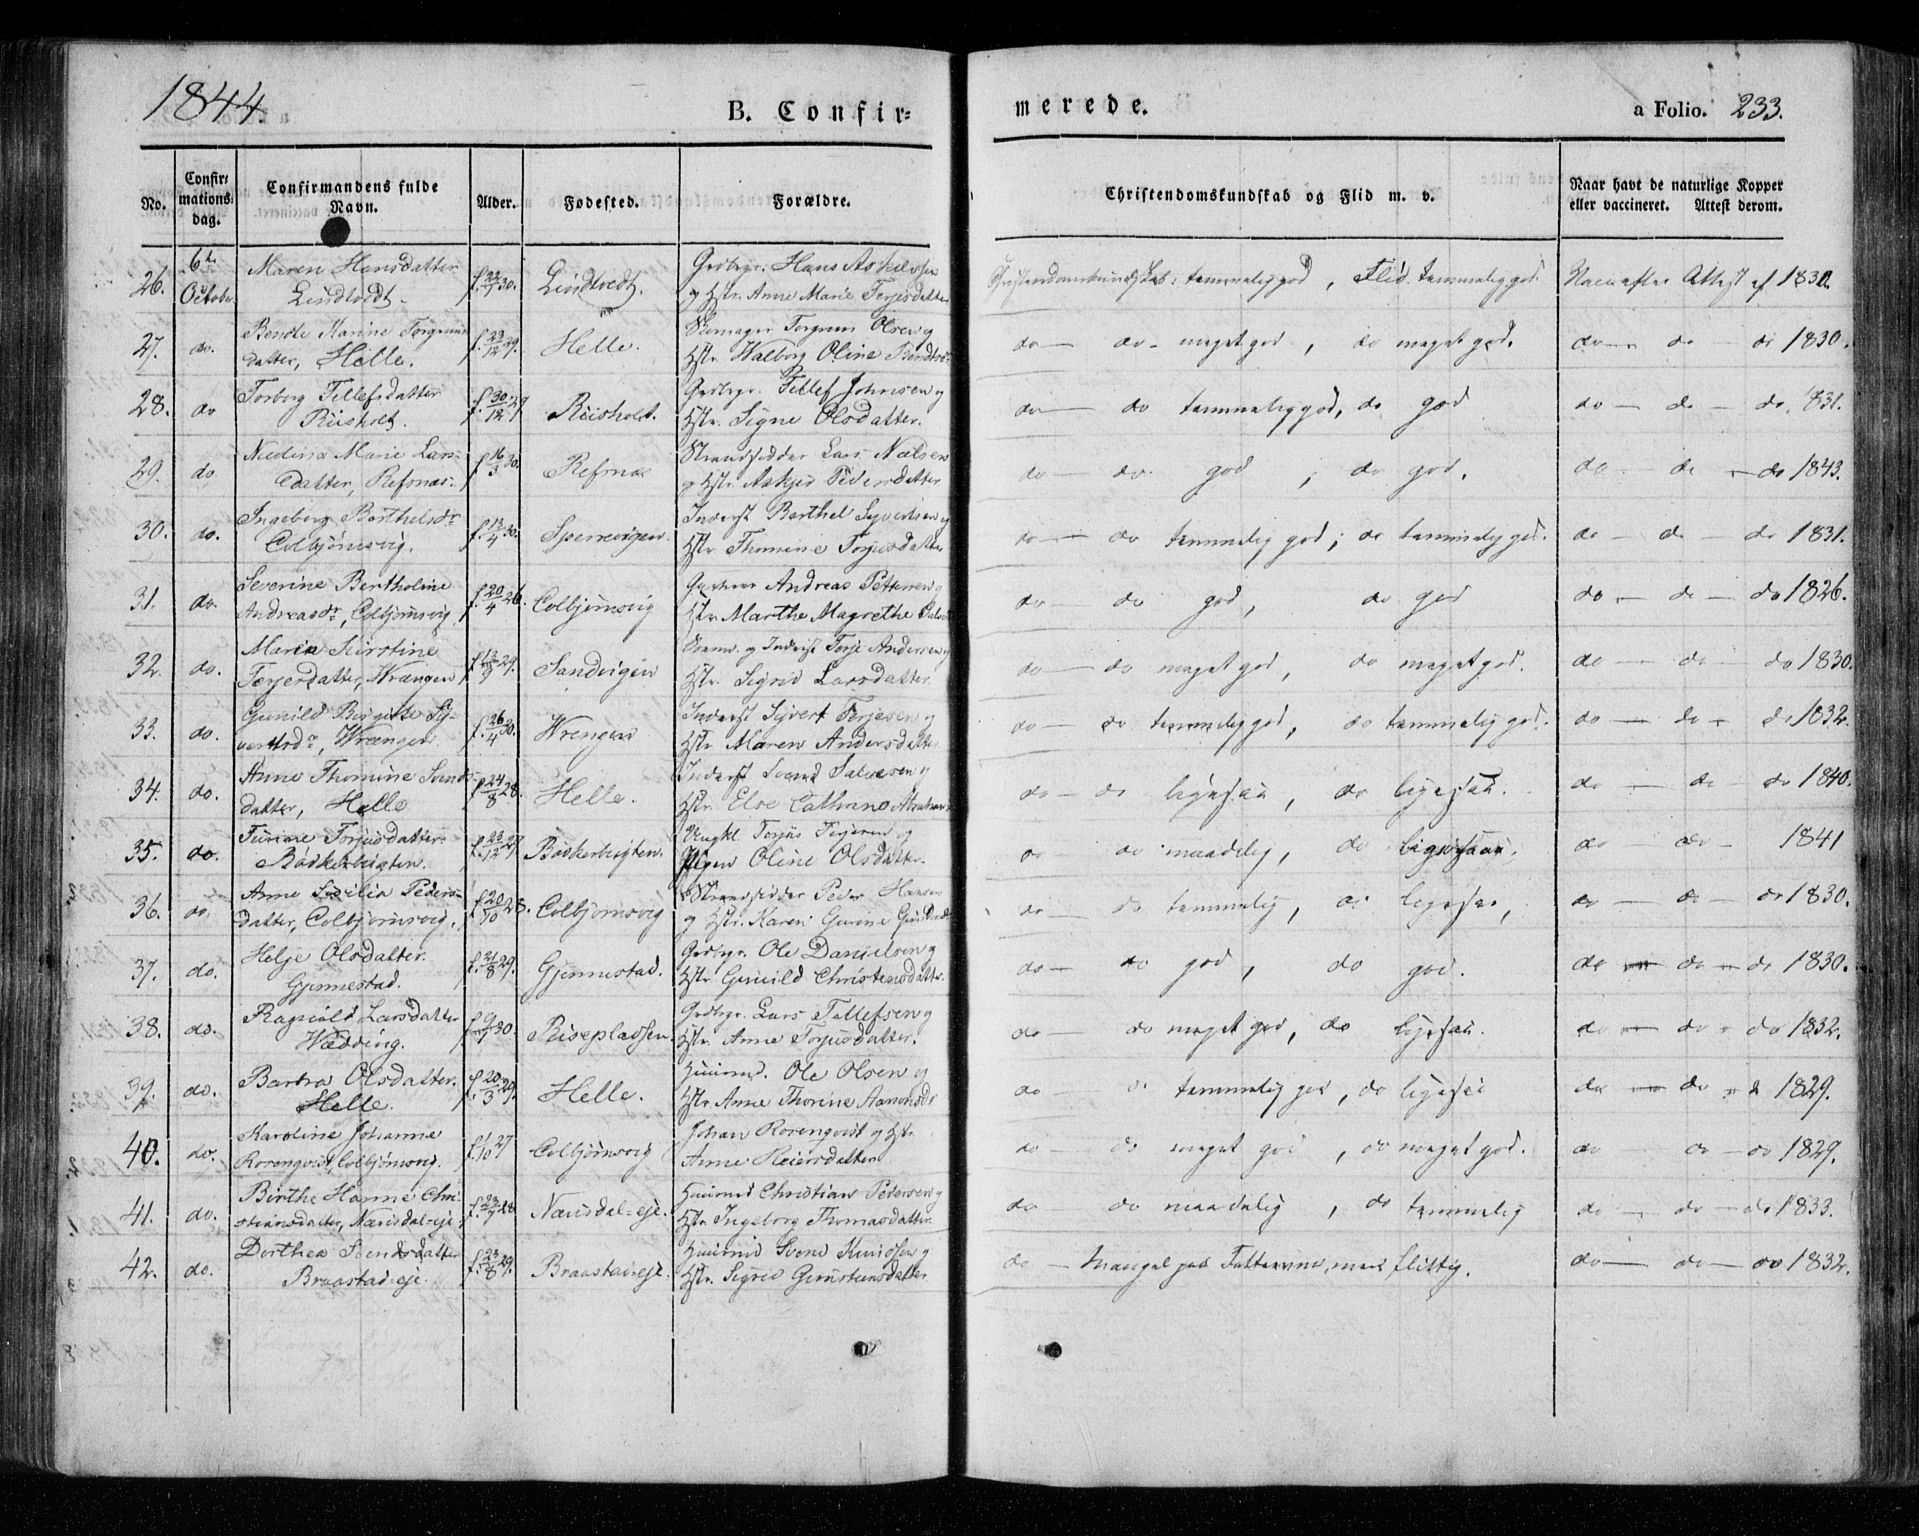 1844.
B. Confir=
merede.
a Folio. 233.
No.
Confir= mations= dag.
Confirmandens fulde Navn.
Alder.
Fødested.
Forældre.
Christendomskundskab og Flid m. v.
Naar havt de naturlige Kopper eller vaccineret. Attest derom.
26. 6te October Maren Hansdatter Lindtvedt. f. 22/7 30. Lindtvedt. Grdbgr. Hans Askilsen og Hstr. Anne Marie Terjesdatter Christendomskundskab: temmelig god, Flid temmelig god. Vacc. efter Attest af 1830.
27. do. Bendte Karine Torgrims datter, Helle. f. 23/12 29. Helle. Skomager Torgrim Olsen og Hstr. Walborg Oline Bendtsd. do — do - meget god, do meget god. do — do — do 1830.
28. do Torborg Tellefsdatter Riisholt. f. 30/12 29 Riisholt. Grdbgr. Tellef Johnsen og Hstr. Signe Olsdatter. do — do temmelig god, do god do — do — do. 1831.
29. do Marie Lars= datter, Refsnæs. f. 16/3 30. Refsnæs Strandsidder Lars Nielsen og Hstr. Pedersdatter do — do. god, do god. do — do — do 1843.
30. do. Ingeborg Berthelsdr Colbjörnsvig. f. 13/4 30. Sperrevigen. Inderst Berthel Syvertsen og Hstr. Thomine Torjusdatter do — do temmelig god; do temmelig god. do — do — do 1831.
31. do. Severine Bertholine Andreasdr, Colbjörnsvig. f. 20/4 26. Colbjörnsvig Andreas Pettersen og Hstr. Marthe Magrethe do do god, do god do — do — do 1826.
32. do. Maria Kirstine Terjesdatter, Wrængen f. 13/9 29. Sandvigen og Inderst Terje Andersen og Hstr. Sigrid Larsdatter. do — do meget god, do meget god. do — do — do 1830.
33. do. Gunild Birgitte Sy= vertsdr, Wrængen. f. 26/4 30. Wrengen Inderst Syvert Terjesen og Hstr Maren Andersdatter. do — do temmelig god, do temmelig god. do — do — do 1832.
34. do. Anne Thomine Svends datter, Helle f. 24/8 28. Helle. Inderst Svend Salvesen og Hstr. Else Cathrine do — do ligesaa, do ligesaa. do — do — do 1840.
35. do. Torjusdatter. Bödkerbugten. f. 23/12 29 Bödkerbugten. Ungkl. Torjus Terjesen og Pigen Oline Olsdatter. do — do maadelig, do ligesaa. do — do — 1841
36. do. Anne Secilia Peders= datter, Colbjörnsvig. f. 20/10 28. Colbjörnsvig Strandsidder Peder Hansen og Hstr. Karen do — do temmelig, do ligesaa, do — do — do 1830.
37. do. Helje Olsdatter. Gjennestad. f. 21/8 29. Gjennestad. Grdbgr. Ole Danielsen og Hstr Gunild Christensdatter. do — do god, do god. do — do — do 1830.
38. do. Ragnild Larsdatter Wædding. f. 9/7 30 Riisepladsen. Grdbgr. Lars Tellefsen og Hstr. Anne Torjusdatter. do — do meget god, do ligesaa. do — do — do 1832.
39. do. Barbra Olsdatter. Helle. f. 20/3 29. Helle. Huusmd. Ole Olsen og Hstr Anne Thorine Aamonsdr do — do temmelig god, do ligesaa do — do — do 1829.
40. do. Karoline Johanne Rosenqvist, Colbjörnsvig. f. 1/10 27 Colbjörnsvig Johan Rosenqvist og Hstr. Anne Reiersdatter do — do meget god, do meget god. do — do — do 1829.
41. do. Birthe Hanne Chri= stiansdatter, Næsdal-eje f. 23/7 28 Næsdal-eje. Huusmd Christian Pedersen og Hstr Ingeborg Thomasdatter. do do maadelig, do temmelig do — do — do 1833.
42. do. Dorthea Svendsdatter Braastad-eje. f. 23/8 29. Braastad-eje. Huusmd Svend Knudsen og Hstr. Sigrid Gunstensdatter. do — Mangel paa Fatteevne, men flittig. do — do — do 1832.